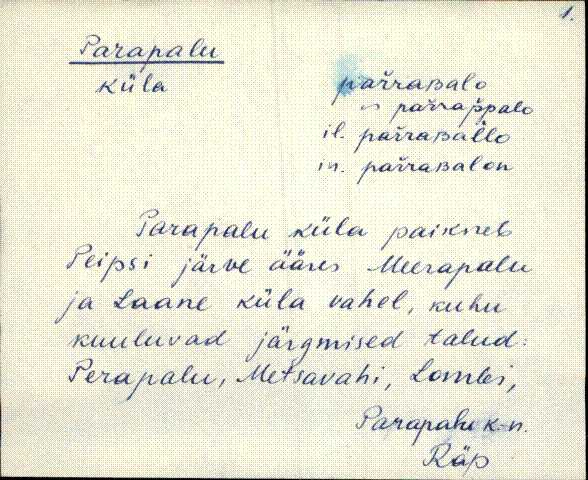 1.
Parapalu
küla
par̆raʙalo
~ par̆rap̆palo
il. par̆raʙal̆lo
in. par̆raʙalon
Parapalu küla paikneb
Peipsi järve ääres Meerapalu
ja Laane küla vahel, kuhu
kuuluvad järgmised talud:
Perapalu, Metsavahi, Lombi,
Parapalu k-n.
Räp